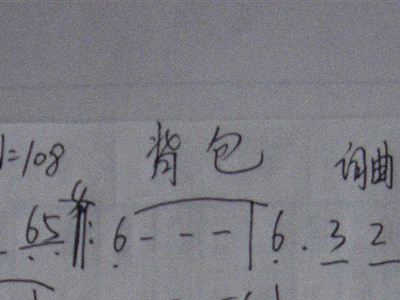 =108 背包 词曲
65 4 6 - - - | 6. 3 2